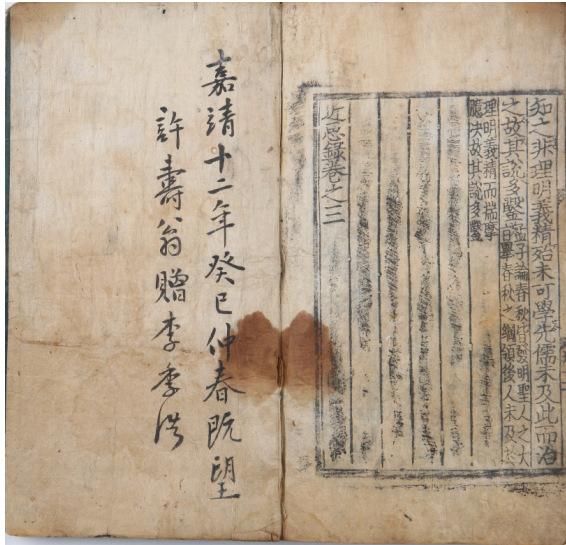 知之非理明義精殆未可學先儒未及此而治
之故其說多鑿
孟子論春秋皆發明聖人之大
旨舉春秋之綱領後人未及
理明義精而揣摩
臆決故其說多鑿
近思錄卷之三
嘉靖十二年癸巳仲春旣望
許壽翁贈李季浩